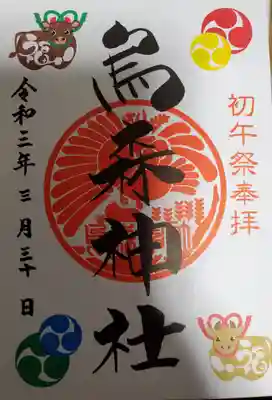 初午祭奉拝
烏森神社
令和三年三月三十日